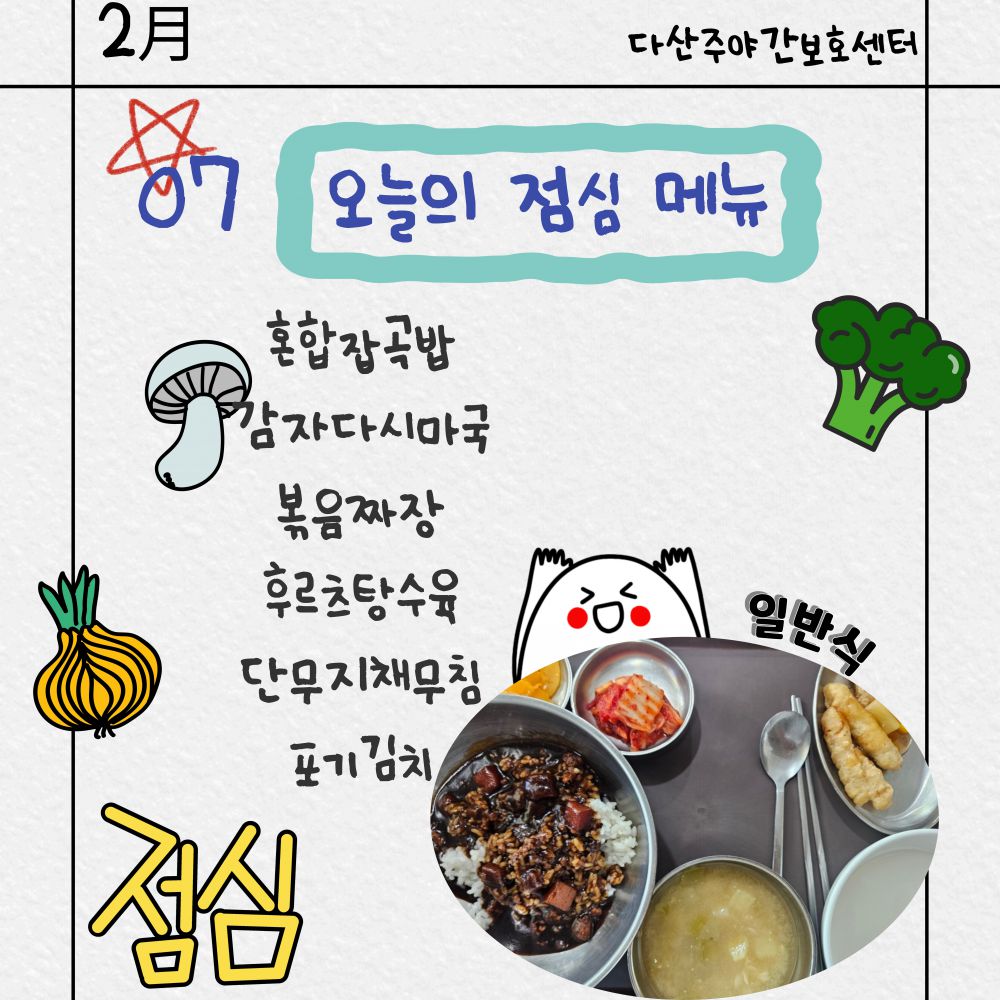 2月
다산주야간보호센터
07 오늘의 점심 메뉴
혼합잡곡밥
감자다시마국
볶음짜장
후르츠탕수육
단무지채무침
포기김치
일반식
점심